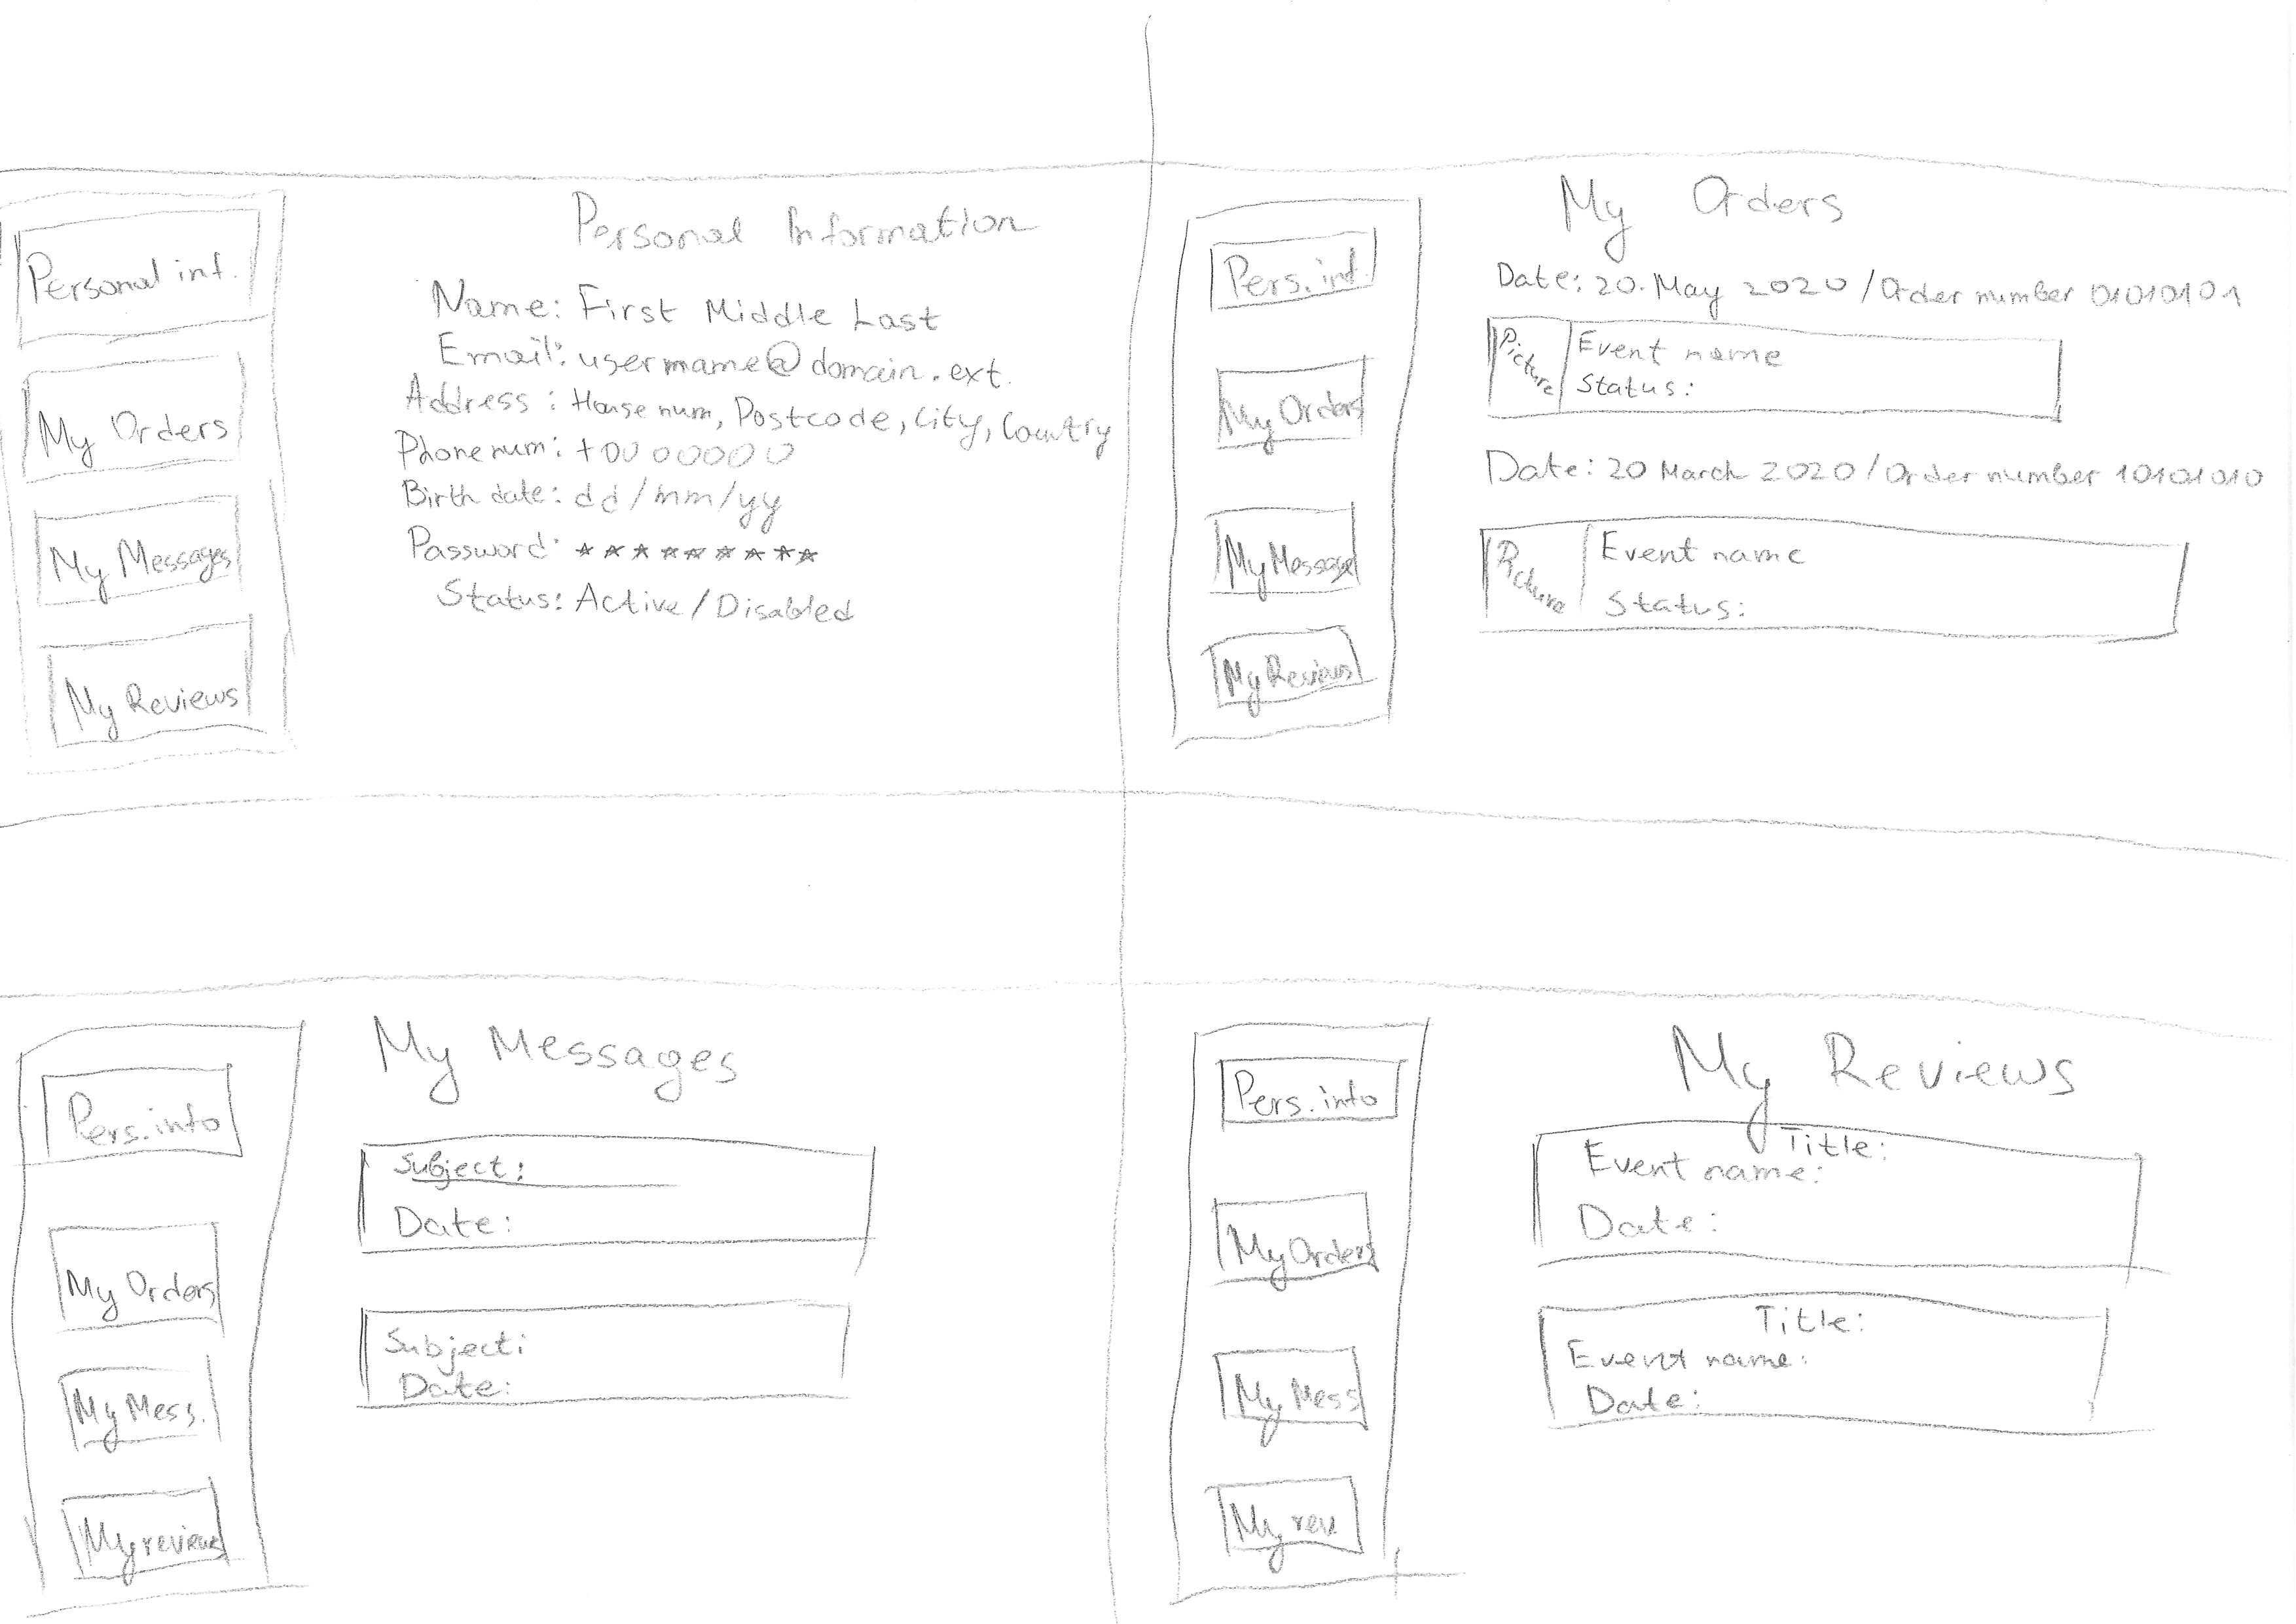 Personal inf.
My Orders
My Messages
My Reviews
Personal Information
Name: First Middle Last
Email: usermame@domain.ext.
Address: House num, Postcode, City, Country
Phone num: +00 00000
Birth date: dd/mm/yy
Password: *********
Status: Active/Disabled
Pers. inf.
My Orders
My Message
My Reviews
My Orders
Date: 20. May 2020/Order number 01010101
Picture
Event name
Status:
Date: 20 March 2020/Order number 10101010
Picture
Event name
Status:
Pers. info
My Orders
My Mess.
My reviews
My Messages
Subject:
Date:
Subject:
Date:
Pers. info
My Orders
My Mess
My rev.
My Reviews
Title:
Event name:
Date:
Title:
Event name:
Date: